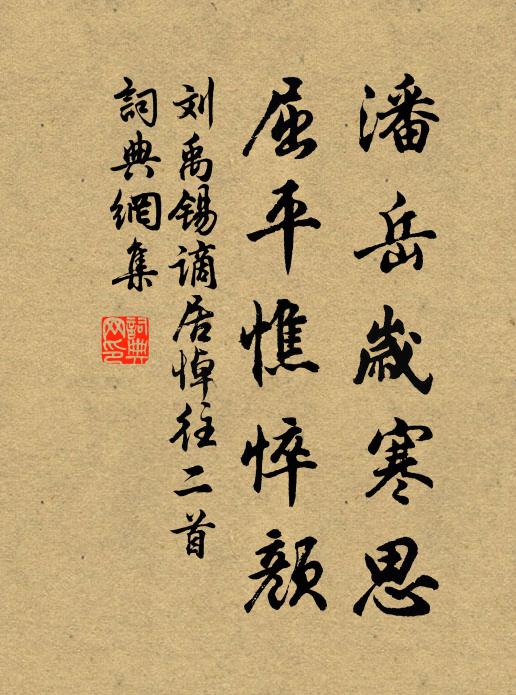 潘岳歲寒思
屈平憔悴顏
刘禹锡謫居悼往二首
詞典網集
詞典網印